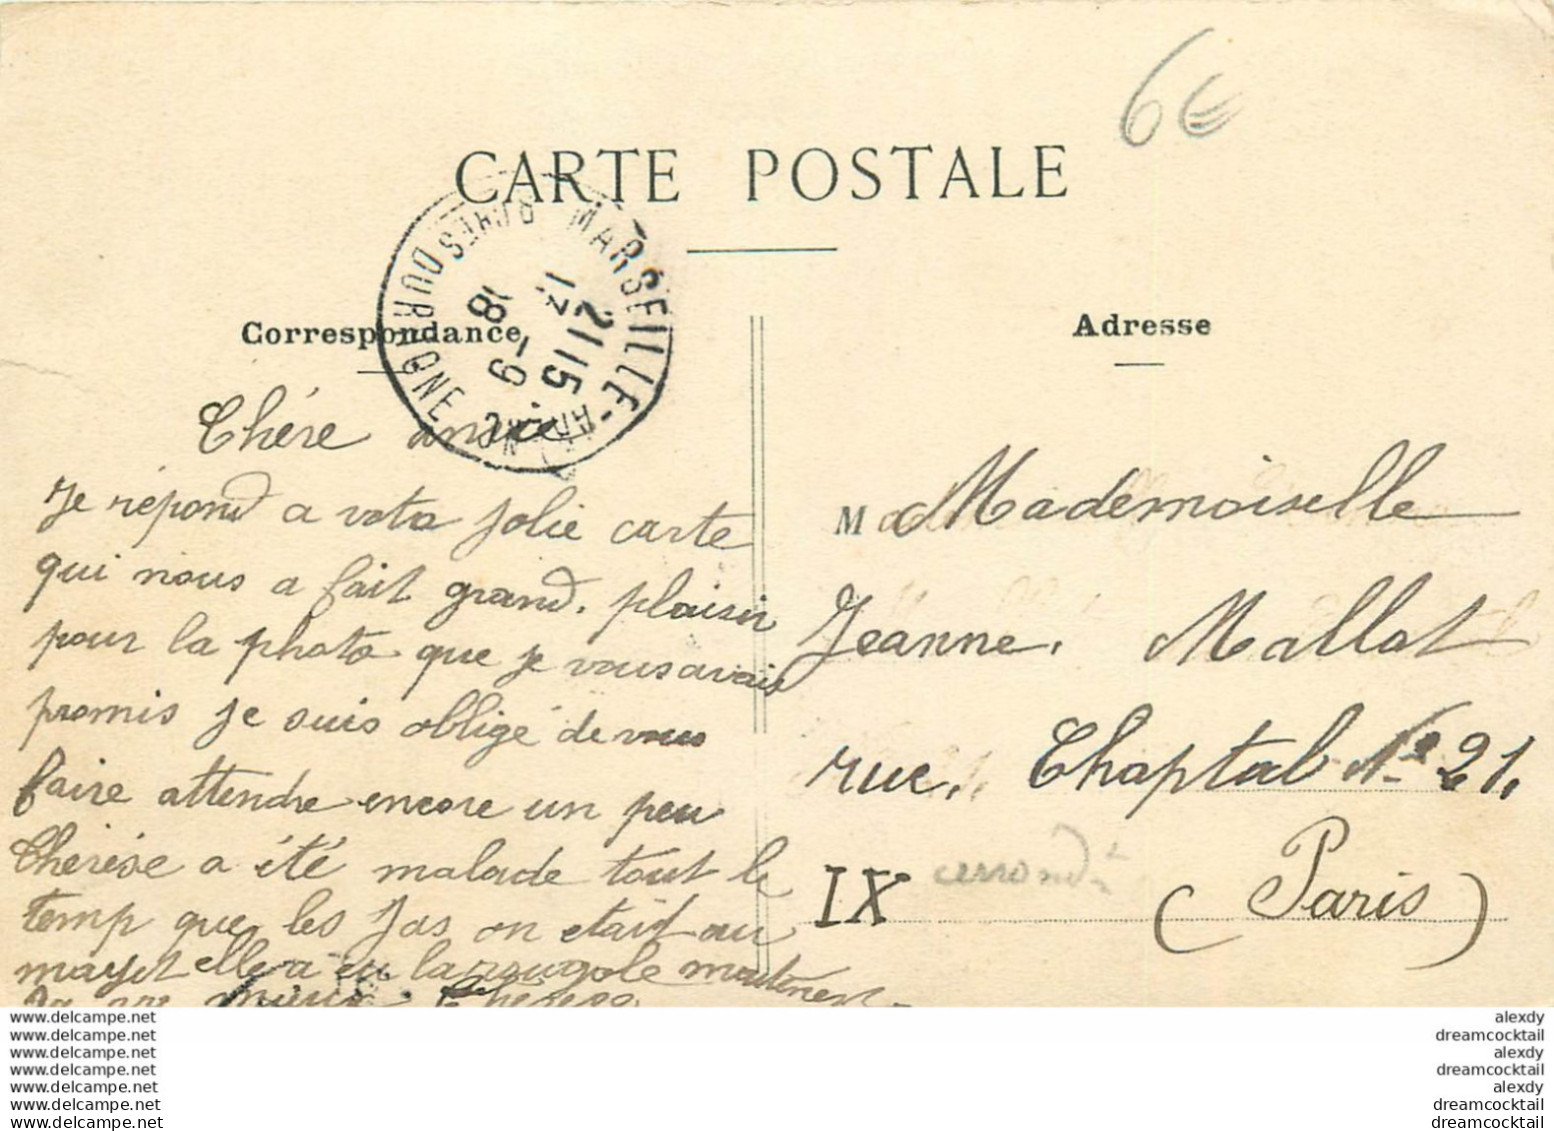 6€
CARTE POSTALE
MARSEILLE-
BCHES DU RHONE
21 15
18 -9
Correspondance
Adresse
Chére amie
Je répond a vota jolie carte
qui nous a fait grand. plaisir
pour la photo que je vous avais
promis je suis obligé de vous
faire attendre encore un peu
Therése a été malade tout le
temp que les Jas on etait au
mayet elle a eu la rougole maitenent
sa va mieux. Therese
M Mademoiselle
Jeanne. Mallot
rue. Chaptal No 21.
IX arrond
(Paris)
www.delcampe.net
www.delcampe.net
www.delcampe.net
www.delcampe.net
www.delcampe.net
www.delcampe.net
www.delcampe.net
alexdy
dreamcocktail
alexdy
dreamcocktail
alexdy
dreamcocktail
dreamcocktail